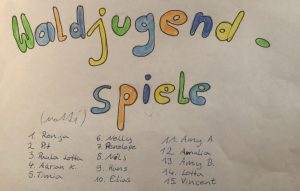 Waldjugend-
spiele
1. Ronja
2. Pit
3. Paula Lotta
4. Adrian K.
5. Timia
6. Nelly
7. Penelope
8. Nils
9. Hans
10. Elias
11. Amy A
12. Amalia
13. Amy B.
14. Lotta
15. Vincent